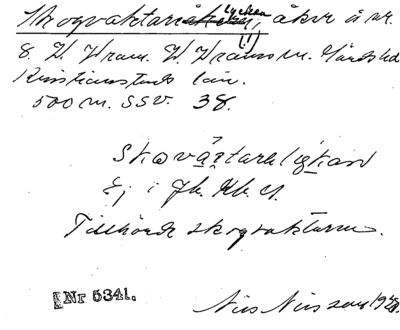 Skogvaktarelyckan, åker å nr.
(!)
8. V. Vram. V. Vrams sn. Gärds hd
Kristianstads län.
500 m. SSV. 38.
Skovā́ʒtareliɡkan
Ej i Jb. Kb. U.
Tillhörde skogvaktaren.
Nr 5341.
Nils Nilsson 1928.